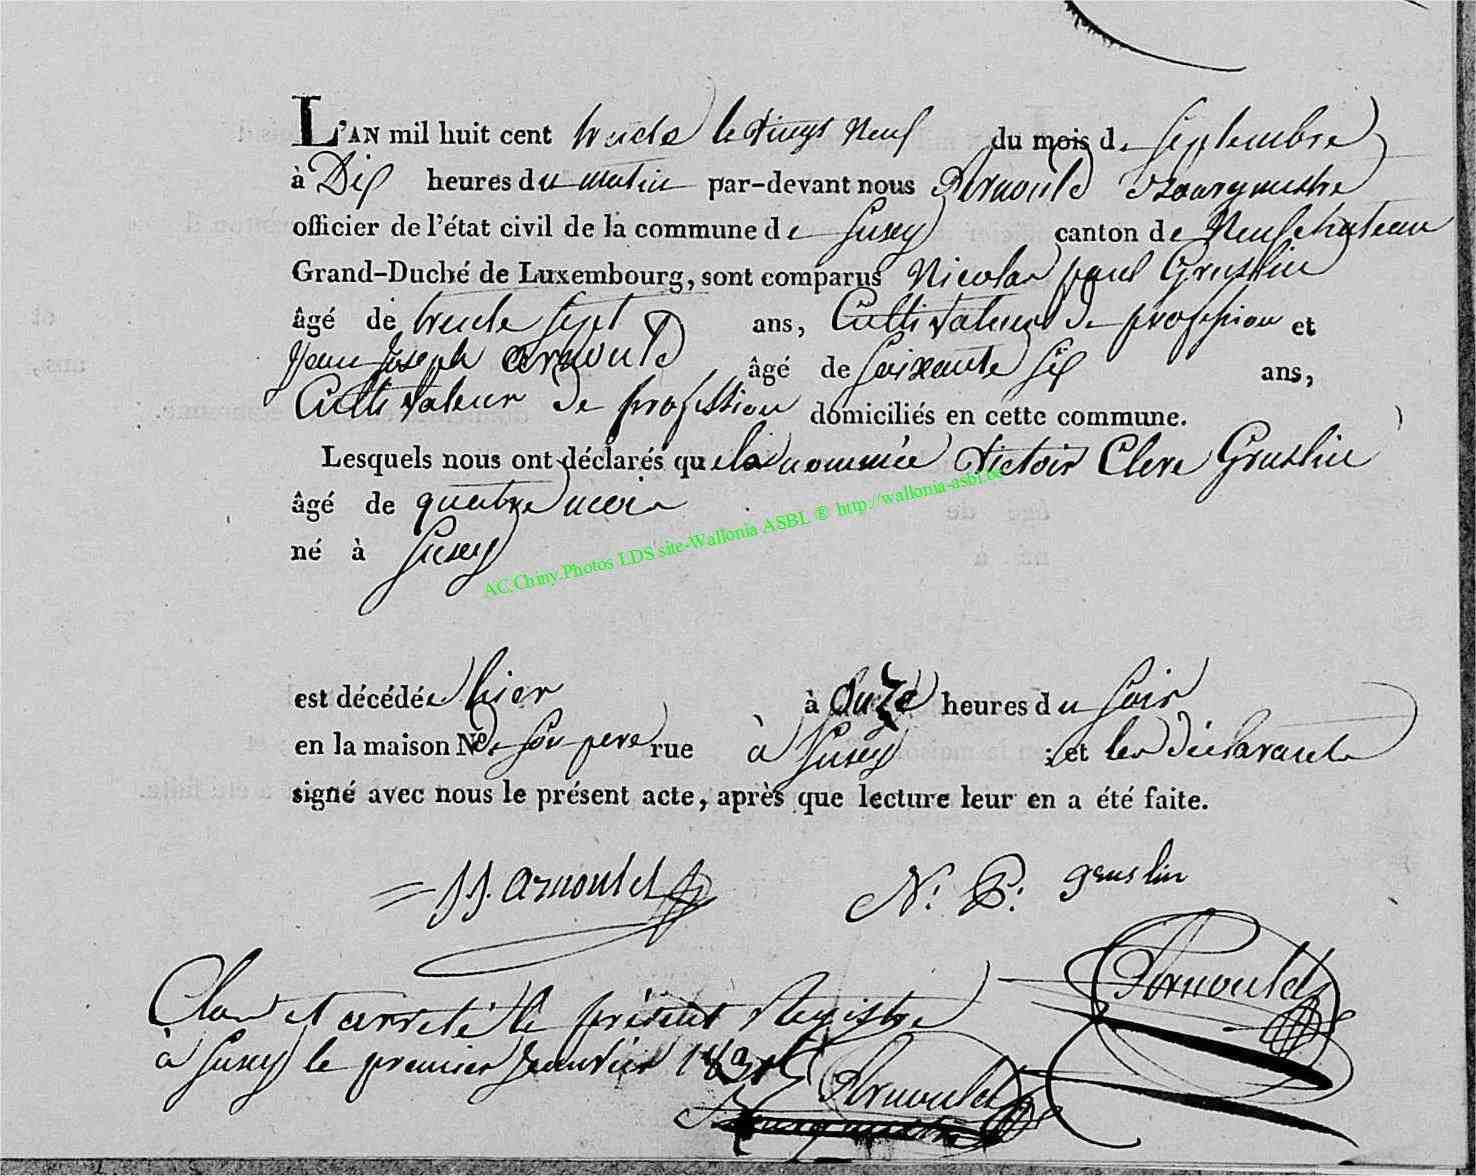 L'AN mil huit cent trente le vingt neuf du mois de Septembre
à Dix heures du matin par-devant nous Arnould Bourgmestre
officier de l'état civil de la commune de Suxy canton de Neufchateau
Grand-Duché de Luxembourg, sont comparus Nicolas paul Gruslin
âgé de trente sept ans, Cultivateur de profession et
Jean Joseph arnould âgé de Soixante six ans,
Cultivateur de profession domiciliés en cette commune.
Lesquels nous ont déclarés que la nommée Victoir Clere Gruslin
âgé de quatre mois
né à Suxy
AC.Chiny.Photos LDS site-Wallonia ASBL ® http://wallonia-asbl.be
est décédée hier à Onze heures du Soir
en la maison No de son pere rue à Suxy ; et les déclarants
signé avec nous le présent acte, après que lecture leur en a été faite.
J J. arnould N. P. gruslin
Arnould
Clos et arreté le présent Registre
à Suxy le premier Janvier
Arnould
Bourgmestre